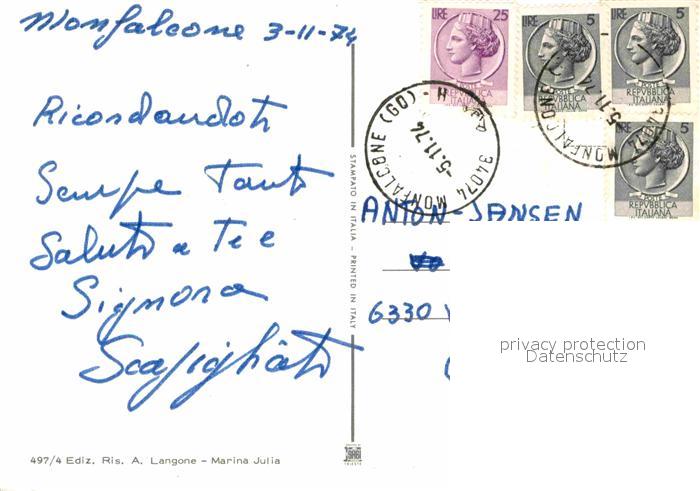 Monfalcone 3-11-74
Ricordandoti
Sempre Tanti
Saluti a Te e
Signora
497/4 Ediz. Ris. A. Langone - Marina Julia
STAMPATO IN ITALIA - PRINTED IN ITALY
LIRE 25
POSTE
REPVBBLICA
ITALIANA
LIRE 5
POSTE
REPVBBLICA
ITALIANA
LIRE 5
POSTE
REPVBBLICA
ITALIANA
5
POSTE
REPVBBLICA
ITALIANA
34074 MONFALCONE (GO) - H
-5.11.74
34074 MONFALCONE
-5.11.74
ANTON-JANSEN
6330
privacy protection
Datenschutz